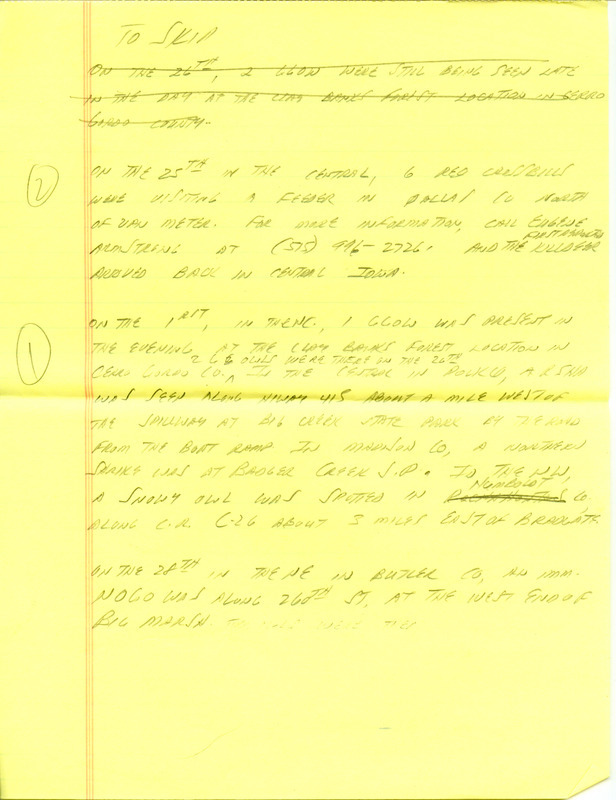 TO SKIP
ON THE 26TH, 2 GGOW WERE STILL BEING SEEN LATE
IN THE DAY AT THE CLAY BANKS FOREST LOCATION IN CERRO
GORDO COUNTY.
2
ON THE 25TH IN THE CENTRAL, 6 RED CROSSBILLS
WERE VISITING A FEEDER IN DALLAS CO NORTH
OF VAN METER. FOR MORE INFORMATION, CALL EUGENE
ARMSTRONG AT (515) 996-2726. AND THE KILLDEER
ARRIVED BACK IN CENTRAL IOWA.
1
ON THE 1RST, IN THE NC., 1 GGOW WAS PRESENT IN
THE EVENING AT THE CLAY BANKS FOREST LOCATION IN
2 GG OWLS WERE THERE ON THE 26TH
CERRO GORDO CO. IN THE CENTRAL IN POLK CO, A RSHA
WAS SEEN ALONG HIWAY 415 ABOUT A MILE WEST OF
THE SPILLWAY AT BIG CREEK STATE PARK BY THE ROAD
FROM THE BOAT RAMP. IN MADISON CO, A NORTHERN
SHRIKE WAS AT BADGER CREEK S.P. IN THE NW,
HUMBOLDT
A SNOWY OWL WAS SPOTTED IN CO.
ALONG C.R. C-26 ABOUT 3 MILES EAST OF BRADGATE.
ON THE 28TH IN THE NE IN BUTLER CO, AN IMM.
NOGO WAS ALONG 260TH ST, AT THE WEST END OF
BIG MARSH.